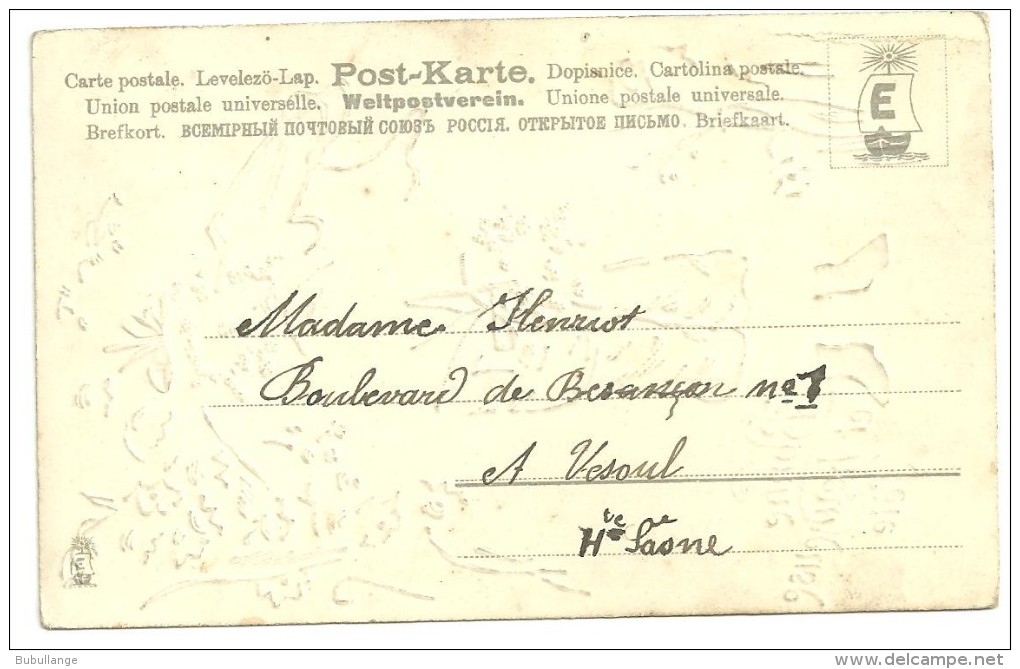 Carte postale. Levelezö-Lap. Post-Karte. Dopisnice. Cartolina postale.
Union postale universelle. Weltpostverein. Unione postale universale.
Brefkort. ВСЕМІРНЫЙ ПОЧТОВЫЙ СОЮЗЪ РОССІЯ. ОТКРЫТОЕ ПИСЬМО. Briefkaart.
E
Madame Henriot
Boulevard de Besançon nº 7
A Vesoul
Hte Saône
E
Bubullange
www.delcampe.net